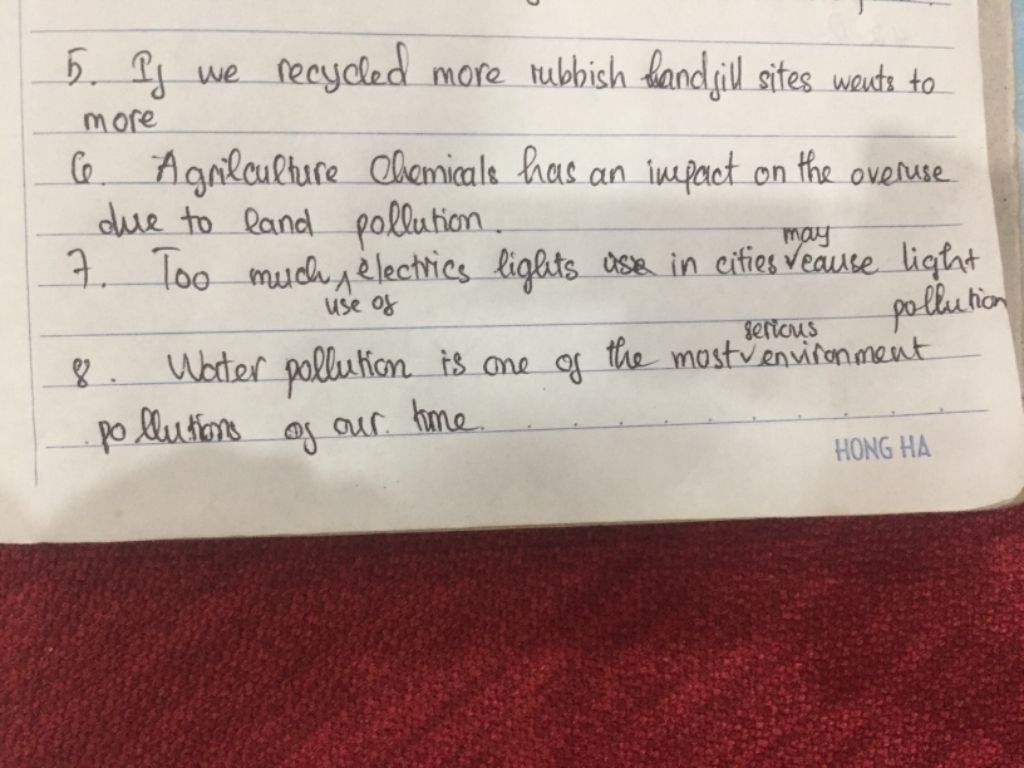 5. If we recycled more rubbish landfill sites wents to
more
6. Agrilculture Chemicals has an impact on the overuse
due to land pollution.
7. Too much use of electrics lights use in cities may cause light
pollution
8. Water pollution is one of the most serious environment
pollutions of our time.
HONG HA